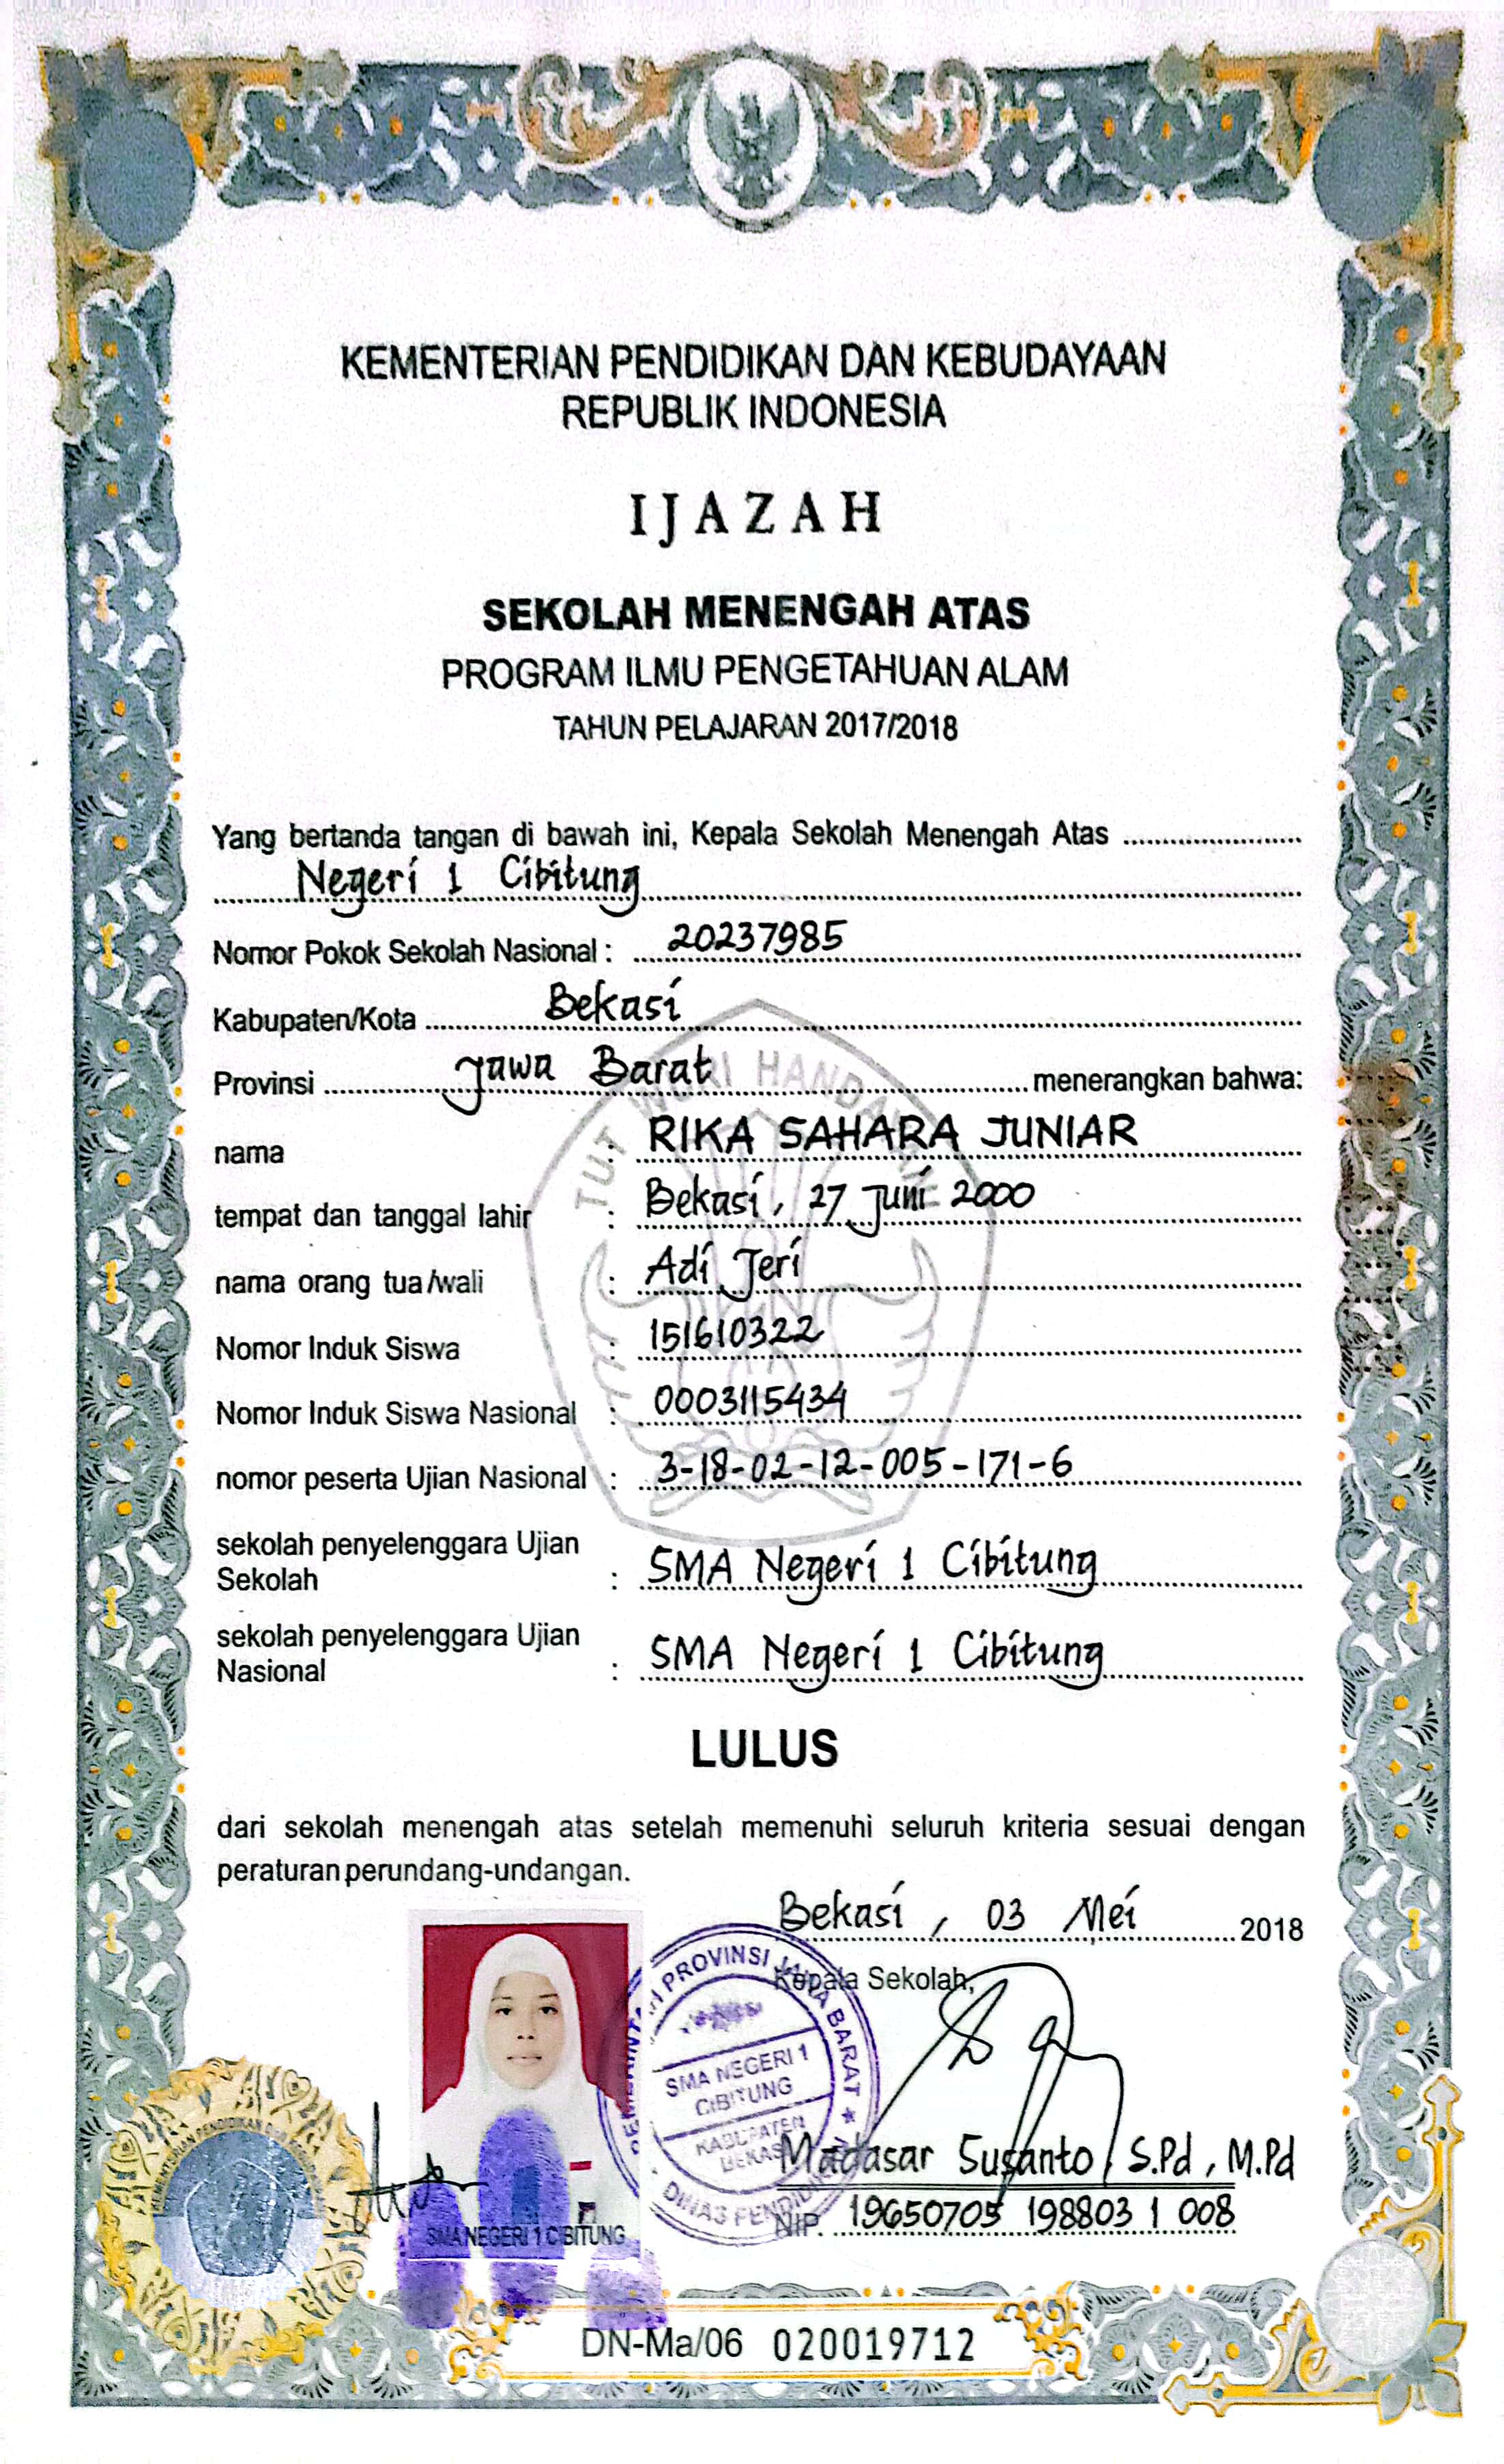 KEMENTERIAN PENDIDIKAN DAN KEBUDAYAAN
REPUBLIK INDONESIA
IJAZAH
SEKOLAH MENENGAH ATAS
PROGRAM ILMU PENGETAHUAN ALAM
TAHUN PELAJARAN 2017/2018
Yang bertanda tangan di bawah ini, Kepala Sekolah Menengah Atas
Negeri 1 Cibitung
Nomor Pokok Sekolah Nasional : 20237985
Kabupaten/Kota Bekasi
Provinsi Jawa Barat menerangkan bahwa:
TUT WURI HANDAYANI
nama : RIKA SAHARA JUNIAR
tempat dan tanggal lahir : Bekasi, 27 Juni 2000
nama orang tua/wali : Adi Jeri
Nomor Induk Siswa : 151610322
Nomor Induk Siswa Nasional : 0003115434
nomor peserta Ujian Nasional : 3-18-02-12-005-171-6
sekolah penyelenggara Ujian
Sekolah : SMA Negeri 1 Cibitung
sekolah penyelenggara Ujian
Nasional : SMA Negeri 1 Cibitung
LULUS
dari sekolah menengah atas setelah memenuhi seluruh kriteria sesuai dengan
peraturan perundang-undangan.
Bekasi, 03 Mei 2018
Kepala Sekolah,
PEMERINTAH PROVINSI JAWA BARAT
SMA NEGERI 1
CIBITUNG
KABUPATEN
BEKASI
DINAS PENDIDIKAN
Madasar Susanto, S.Pd, M.Pd
NIP. 19650705 198803 1 008
SMA NEGERI 1 CIBITUNG
KEMENTERIAN PENDIDIKAN DAN
DN-Ma/06 020019712